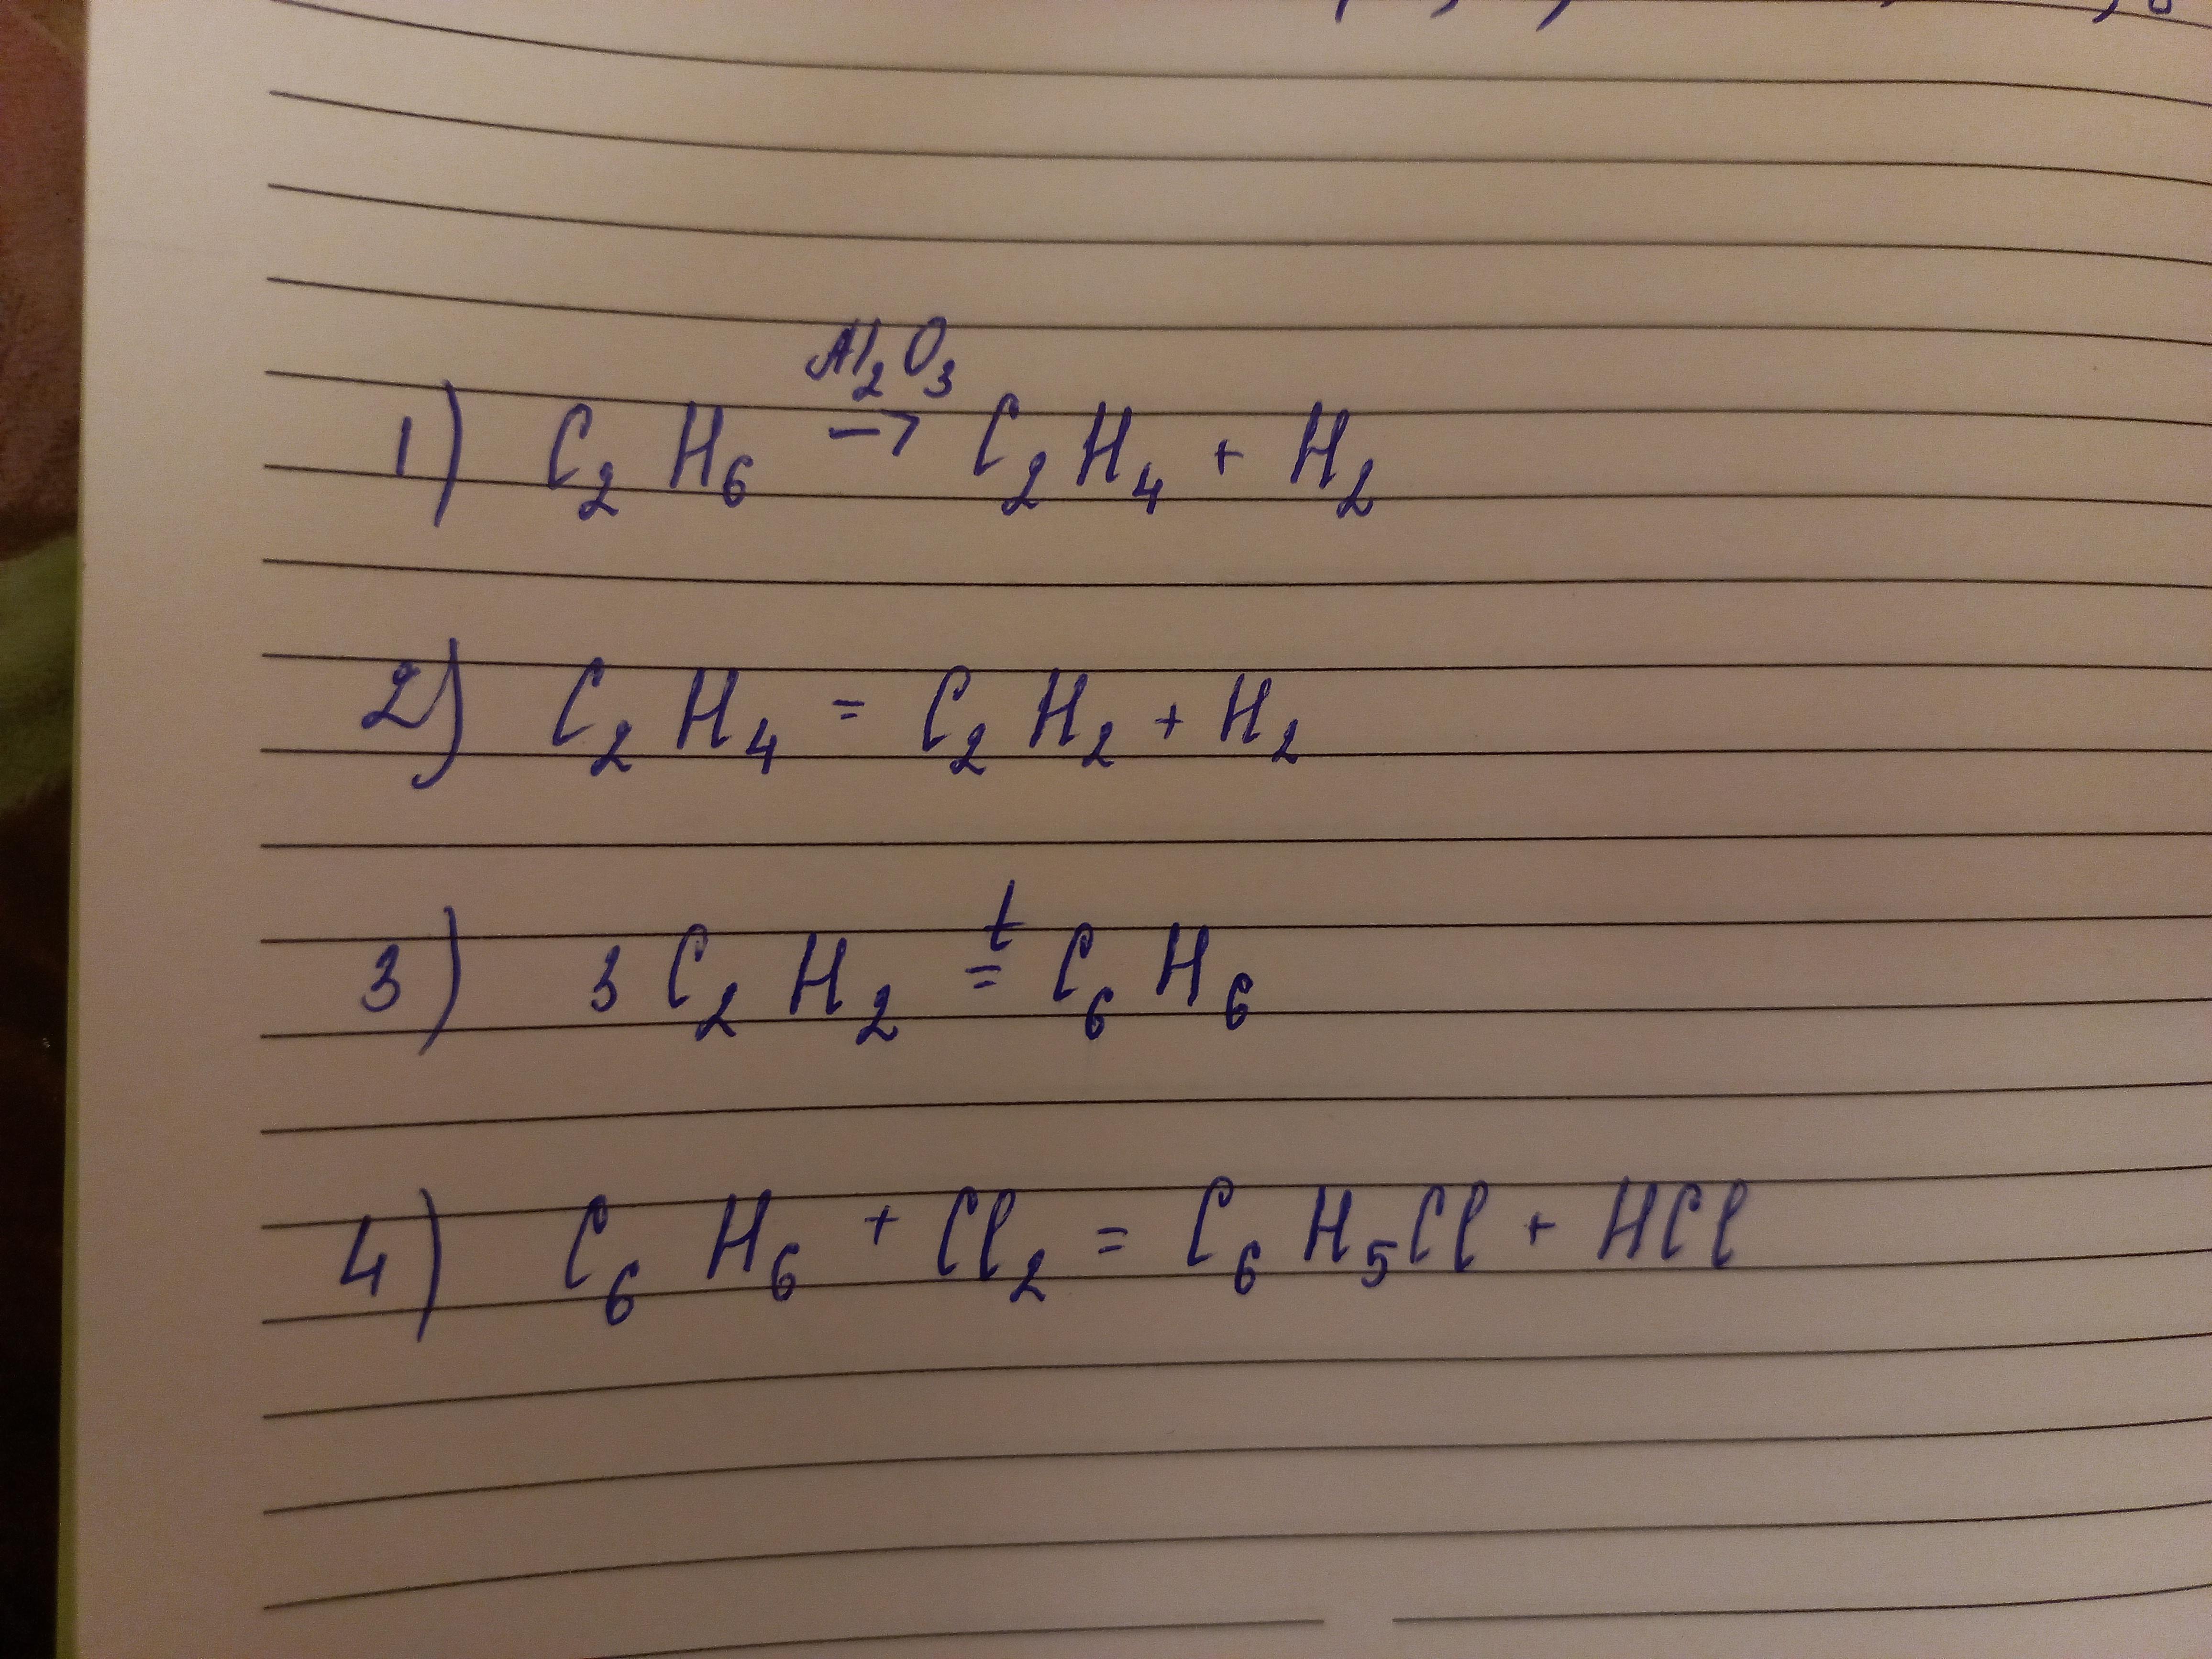 Al₂O₃
1) C₂H₆ → C₂H₄ + H₂
2) C₂H₄ = C₂H₂ + H₂
t
3) 3C₂H₂ = C₆H₆
4) C₆H₆ + Cl₂ = C₆H₅Cl + HCl